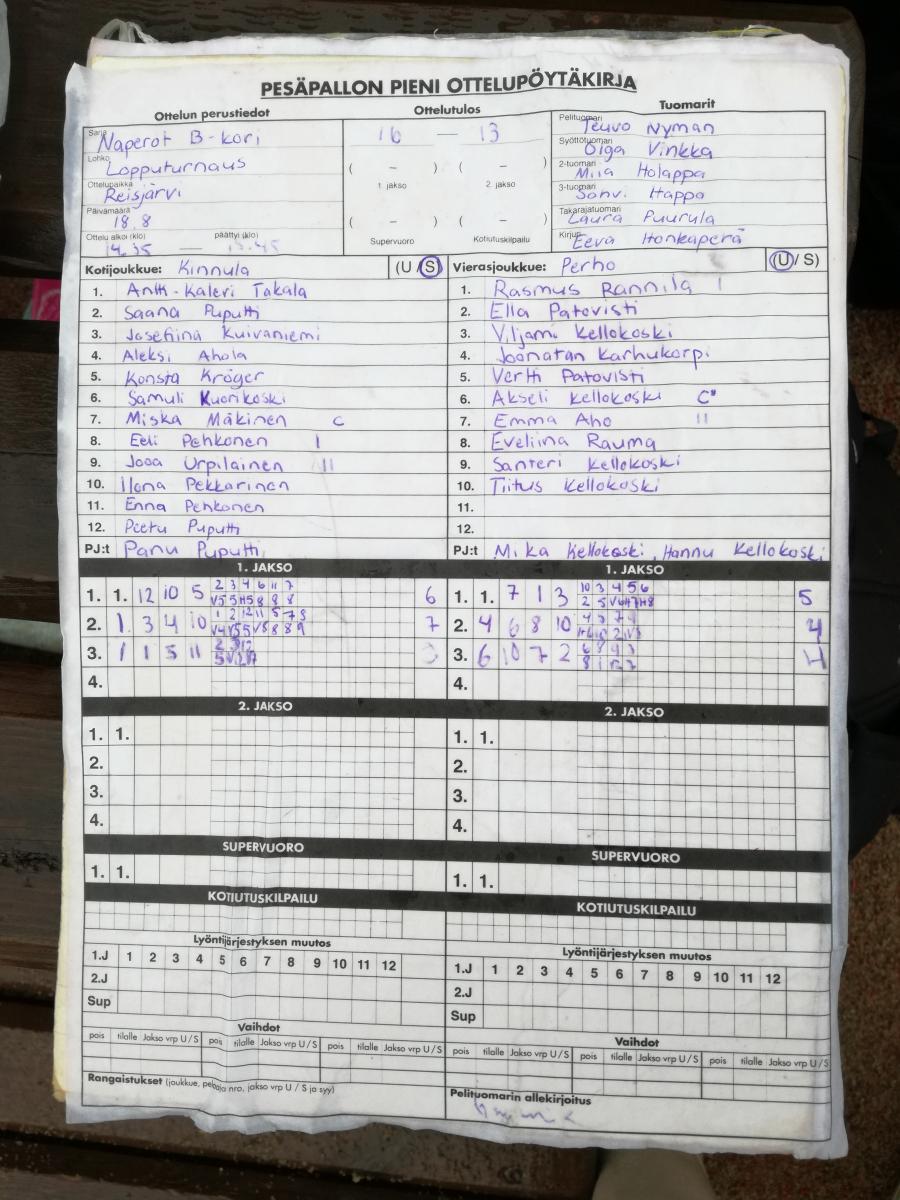 PESÄPALLON PIENI OTTELUPÖYTÄKIRJA
Ottelun perustiedot
Ottelutulos
Tuomarit
Sarja Naperot B-kori
Lohko Lopputurnaus
Ottelupaikka Reisjärvi
Päivämäärä 18.8
Ottelu alkoi (klo) päättyi (klo)
14.35 —
16 — 13
( – ) ( – )
1. jakso 2. jakso
( – ) ( – )
Supervuoro Kotiutuskilpailu
Pelituomari Teuvo Nyman
Syöttötuomari Olga Vinkka
2-tuomari Miia Holappa
3-tuomari Happo
Takarajatuomari Laura Puurula
Kirjuri Eeva Honkaperä
Kotijoukkue: Kinnula (U/S)
1. Antti-Kaleri Takala
2. Saana Puputti
3. Josefiina Kuivaniemi
4. Aleksi Ahola
5. Konsta Kröger
6. Samuli Kuorikoski
7. Miska Mäkinen C
8. Eeli Pehkonen I
9. Jooa Urpilainen II
10. Ilona Pekkarinen
11. Enna Pehkonen
12. Peetu Puputti
PJ:t Panu Puputti
Vierasjoukkue: Perho (U/S)
1. Rasmus Rannila I
2. Ella Patovisti
3. Viljami Kellokoski
4. Joonatan Karhukorpi
5. Vertti Patovisti
6. Akseli Kellokoski C
7. Emma Aho II
8. Eveliina Rauma
9. Santeri Kellokoski
10. Tiitus Kellokoski
11.
12.
PJ:t Mika Kellokoski, Hannu Kellokoski
1. JAKSO
1. 1. 12 10 5 2 3 4 6 11 7 6
2. 1 3 4 10 7
3. 1 1 5 11 3
4.
2. JAKSO
1. 1.
2.
3.
4.
SUPERVUORO
1. 1.
KOTIUTUSKILPAILU
Lyöntijärjestyksen muutos
1.J 1 2 3 4 5 6 7 8 9 10 11 12
2.J
Sup
Vaihdot
pois tilalle Jakso vrp U/S pois tilalle Jakso vrp U/S pois tilalle Jakso vrp U/S
Rangaistukset (joukkue, pelaaja nro, jakso vrp U / S ja syy)
1. JAKSO
1. 1. 7 1 3 10 3 4 5 6 5
2. 4 6 8 10 4
3. 6 10 7 2 4
4.
2. JAKSO
1. 1.
2.
3.
4.
SUPERVUORO
1. 1.
KOTIUTUSKILPAILU
Lyöntijärjestyksen muutos
1.J 1 2 3 4 5 6 7 8 9 10 11 12
2.J
Sup
Vaihdot
pois tilalle Jakso vrp U/S pois tilalle Jakso vrp U/S pois tilalle Jakso vrp U/S
Pelituomarin allekirjoitus